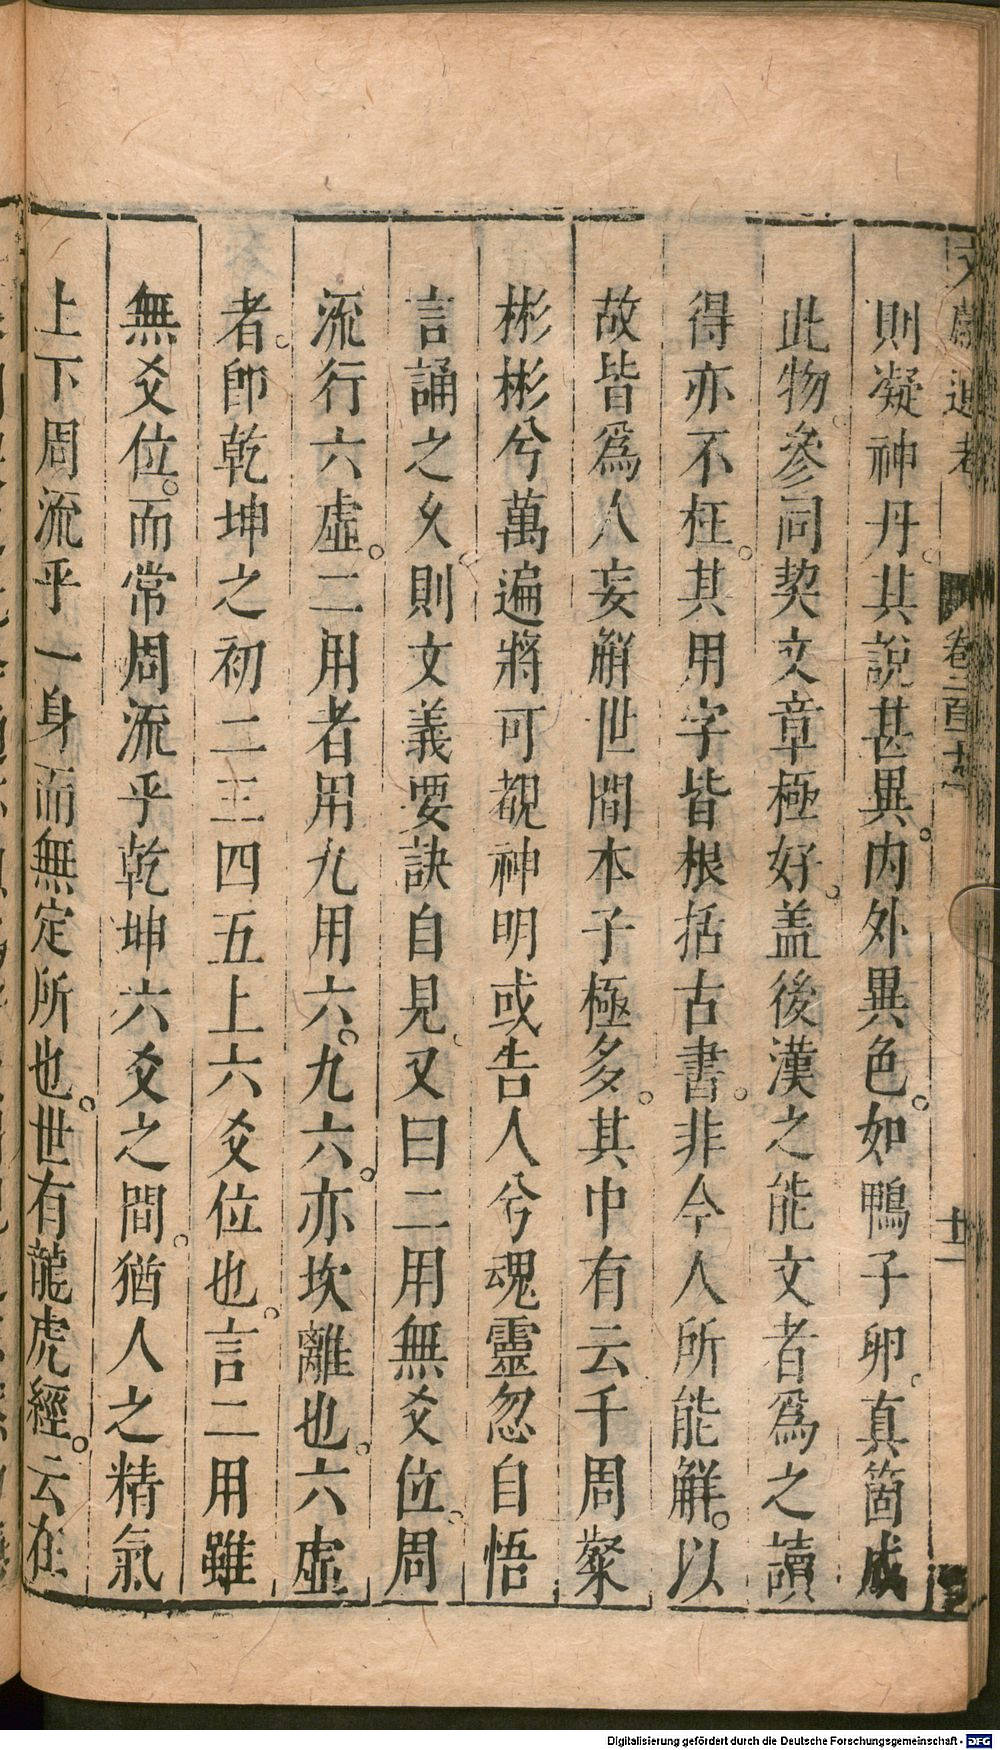 則凝神丹。其說甚異。內外異色。如鴨子卵。真箇成
此物。參同契文章極好。盖後漢之能文者爲之讀
得亦不枉。其用字皆根括古書。非今人所能解。以
故皆爲人妄解世間本子極多。其中有云千周粲
彬彬兮萬遍將可覩神明或告人兮魂靈忽自悟
言誦之乆。則文義要訣自見。又曰二用無爻位。周
流行六虛。二用者用九用六。九六。亦坎離也。六虛
者。卽乾坤之初二三四五上六爻位也。言二用雖
無爻位。而常周流乎乾坤六爻之間。猶人之精氣
上下周流乎一身而無定所也。世有龍虎經。云在
文獻通考 卷二百廿 十二
Digitalisierung gefördert durch die Deutsche Forschungsgemeinschaft - DFG